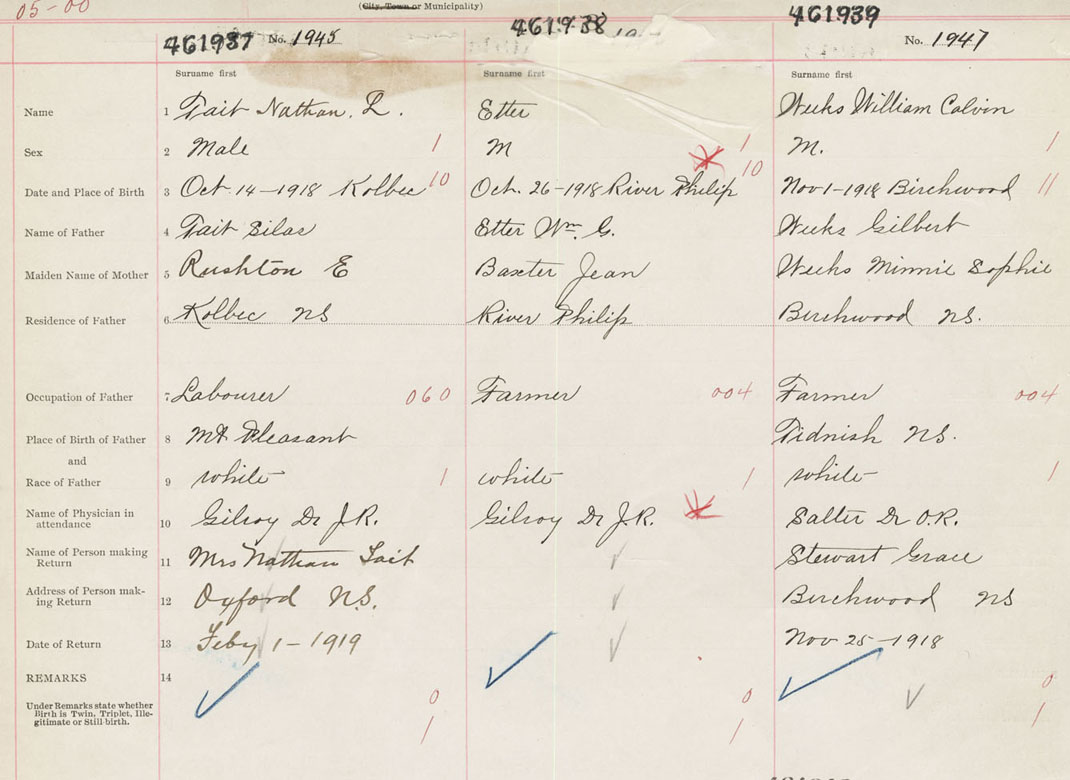 05-00
(City, Town or Municipality)
461937 No. 1945
461938
461939
No. 1947
Surname first Surname first Surname first
Name 1 Tait Nathan. L. Etter Weeks William Calvin
Sex 2 Male 1 M 1 M. 1
Date and Place of Birth 3 Oct 14-1918 Kolbec 10 Oct. 26-1918 River Philip 10 Nov 1-1918 Birchwood 11
Name of Father 4 Tait Silas Etter Wm. G. Weeks Gilbert
Maiden Name of Mother 5 Rushton E Baxter Jean Weeks Minnie Sophie
Residence of Father 6 Kolbec NS River Philip Birchwood NS.
Occupation of Father 7 Labourer 060 Farmer 004 Farmer 004
Place of Birth of Father 8 Mt Pleasant Tidnish NS.
and
Race of Father 9 white 1 white 1 white 1
Name of Physician in
attendance 10 Gilroy Dr J.R. Gilroy Dr J.R. Salter Dr O.R.
Name of Person making
Return 11 Mrs Nathan Tait Stewart Grace
Address of Person mak-
ing Return 12 Oxford N.S. Birchwood NS
Date of Return 13 Feby 1-1919 Nov 25-1918
REMARKS 14
Under Remarks state whether
Birth is Twin, Triplet, Ille-
gitimate or Still-birth.
0 0 0
1 1 1